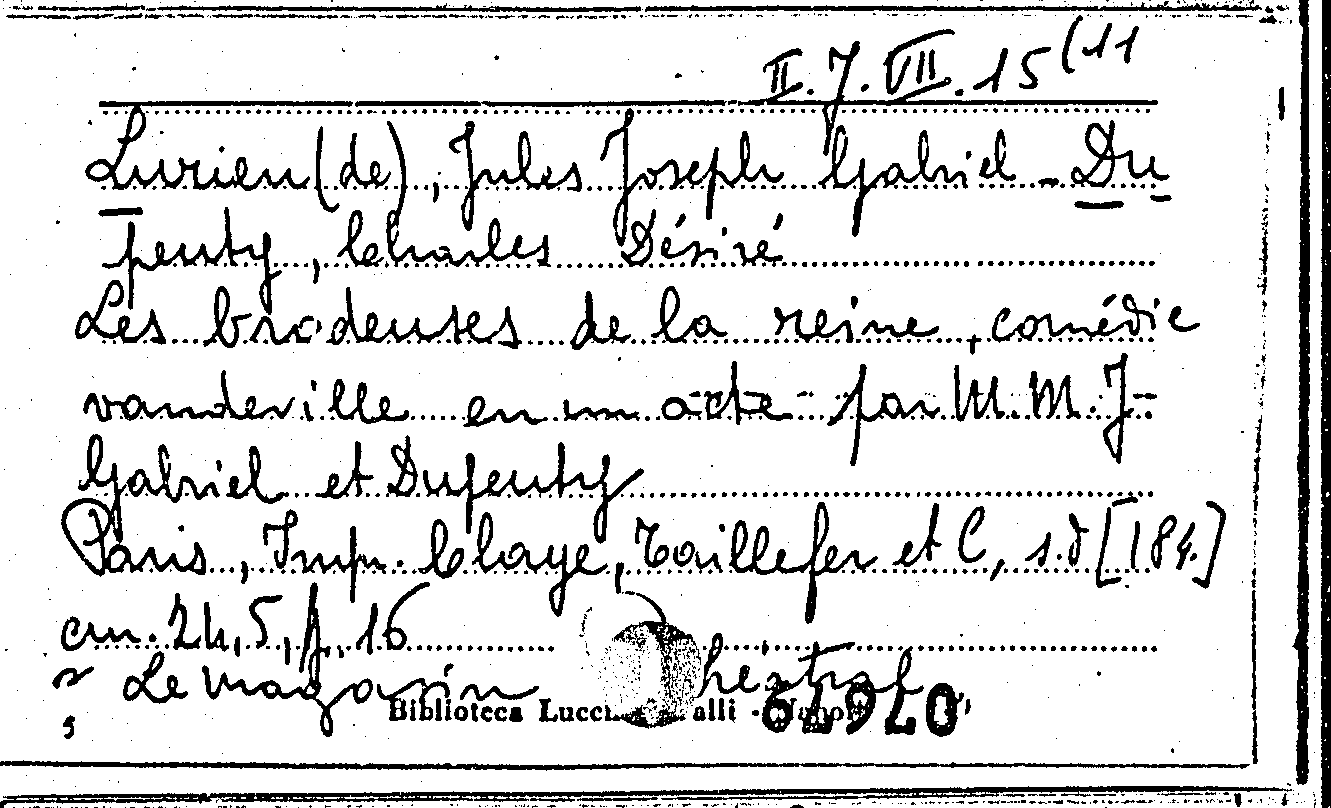 II. J. VII. 15 (11
Lurien (de), Jules Joseph Gabriel - Du
peuty, Charles Désiré
Les brodeuses de la reine, comédie
vaudeville en un acte par M.M. J-
Gabriel et Dupeuty
Paris, Imp. Claye, Taillefer et C, s.d [184.]
cm. 24,5, p. 16
Le magasin théatral
Biblioteca Lucch alli - Napoli
07679